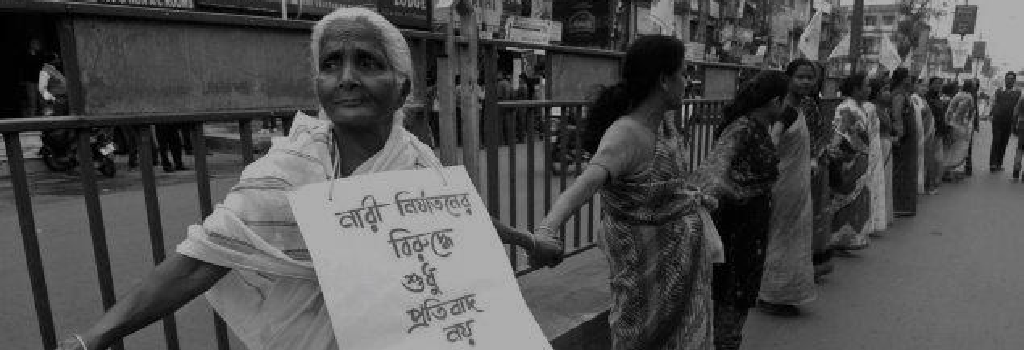 নারী নির্যাতনের
বিরুদ্ধে
শুধু
প্রতিবাদ
নয়